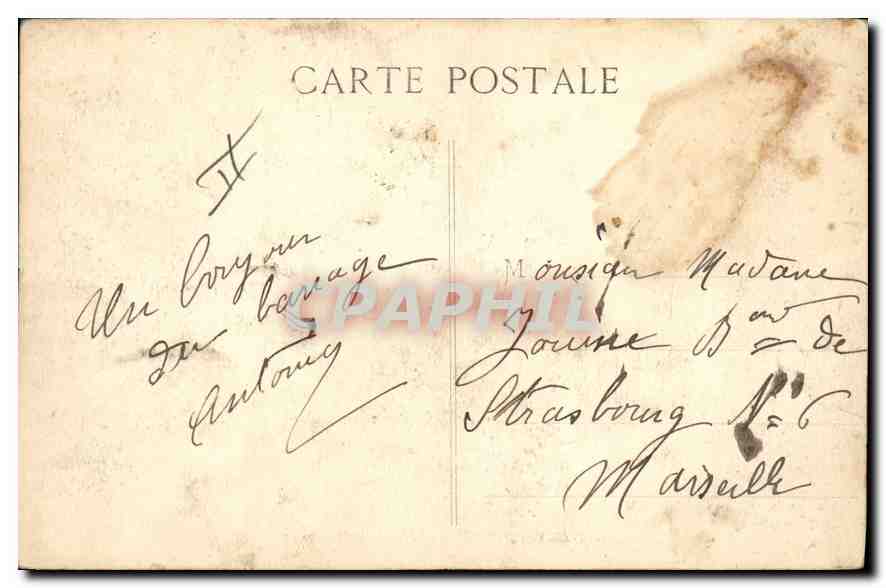 CARTE POSTALE
Un bonjour
du barrage
Antony
Monsieur Madame
Bard de
Strasbourg N° 6
Marseille
CPAPHIL